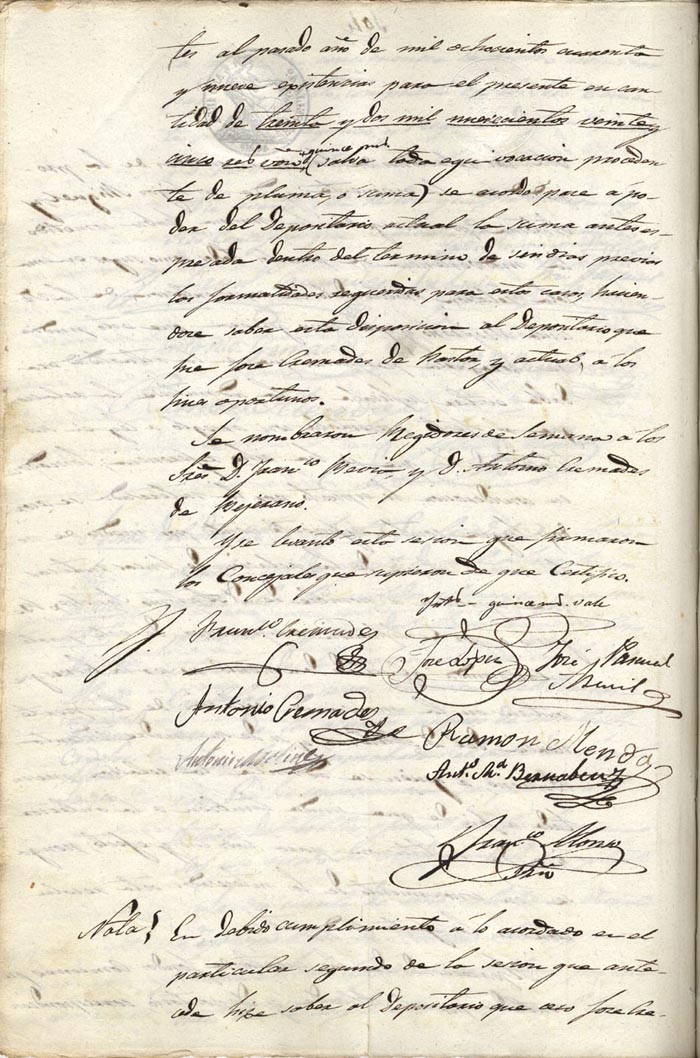 tes al pasado año de mil ochocientos cuarenta
y nueve existencias para el presente en can-
tidad de treinta y dos mil nuevecientos veinte y
cinco rs vn quince mrs (salva toda equivocacion proceden-
te de pluma, o suma) se acordo pase a po-
der del Depositario actual la suma antes es-
presada dentro del termino de seis dias previas
las formalidades requeridas para estos casos, hacien-
dose saber esta disposicion al Depositario que
fue Jose Cremades de Pastor, y actual, a los
fines oportunos.
Se nombraron Regidores de Semana á los
Sres. D. Franco. y D. Antonio Cremades
de Bejerano.
Y se levantó esta sesion que firmaron
los Concejales que supieron de que Certifico.
quince vale
Cremades
Jose Lopez
José Pascual
Antonio Cremades
Ramon
Antonio
Anto. Ma. Bernabeu
Franco. Alonso
Srio
Nota. En debido cumplimiento á lo acordado en el
particular segundo de la sesion que ante-
cede hize saber al Depositario que ceso Jose Cre-